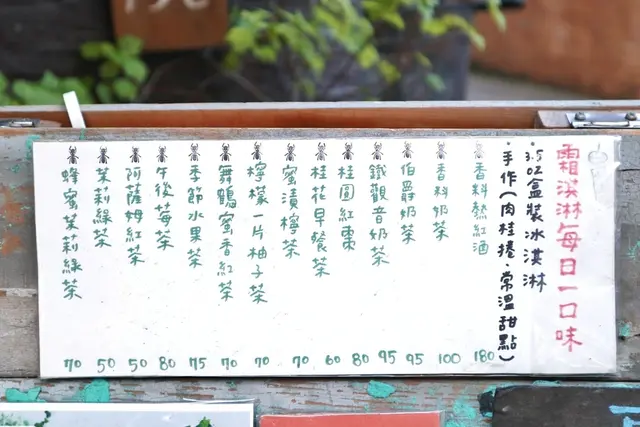 霜淇淋每日一口味
·3.5oz盒裝冰淇淋
·手作(肉桂捲、常溫甜點)
香料熱紅酒 180
香料奶茶 100
伯爵奶茶 95
鐵觀音奶茶 95
桂圓紅棗 80
桂花早餐茶 60
蜜漬檸茶 70
檸檬一片柚子茶 70
舞鶴蜜香紅茶 70
季節水果茶 75
午後莓茶 80
阿薩姆紅茶 50
茉莉綠茶 50
蜂蜜茉莉綠茶 70